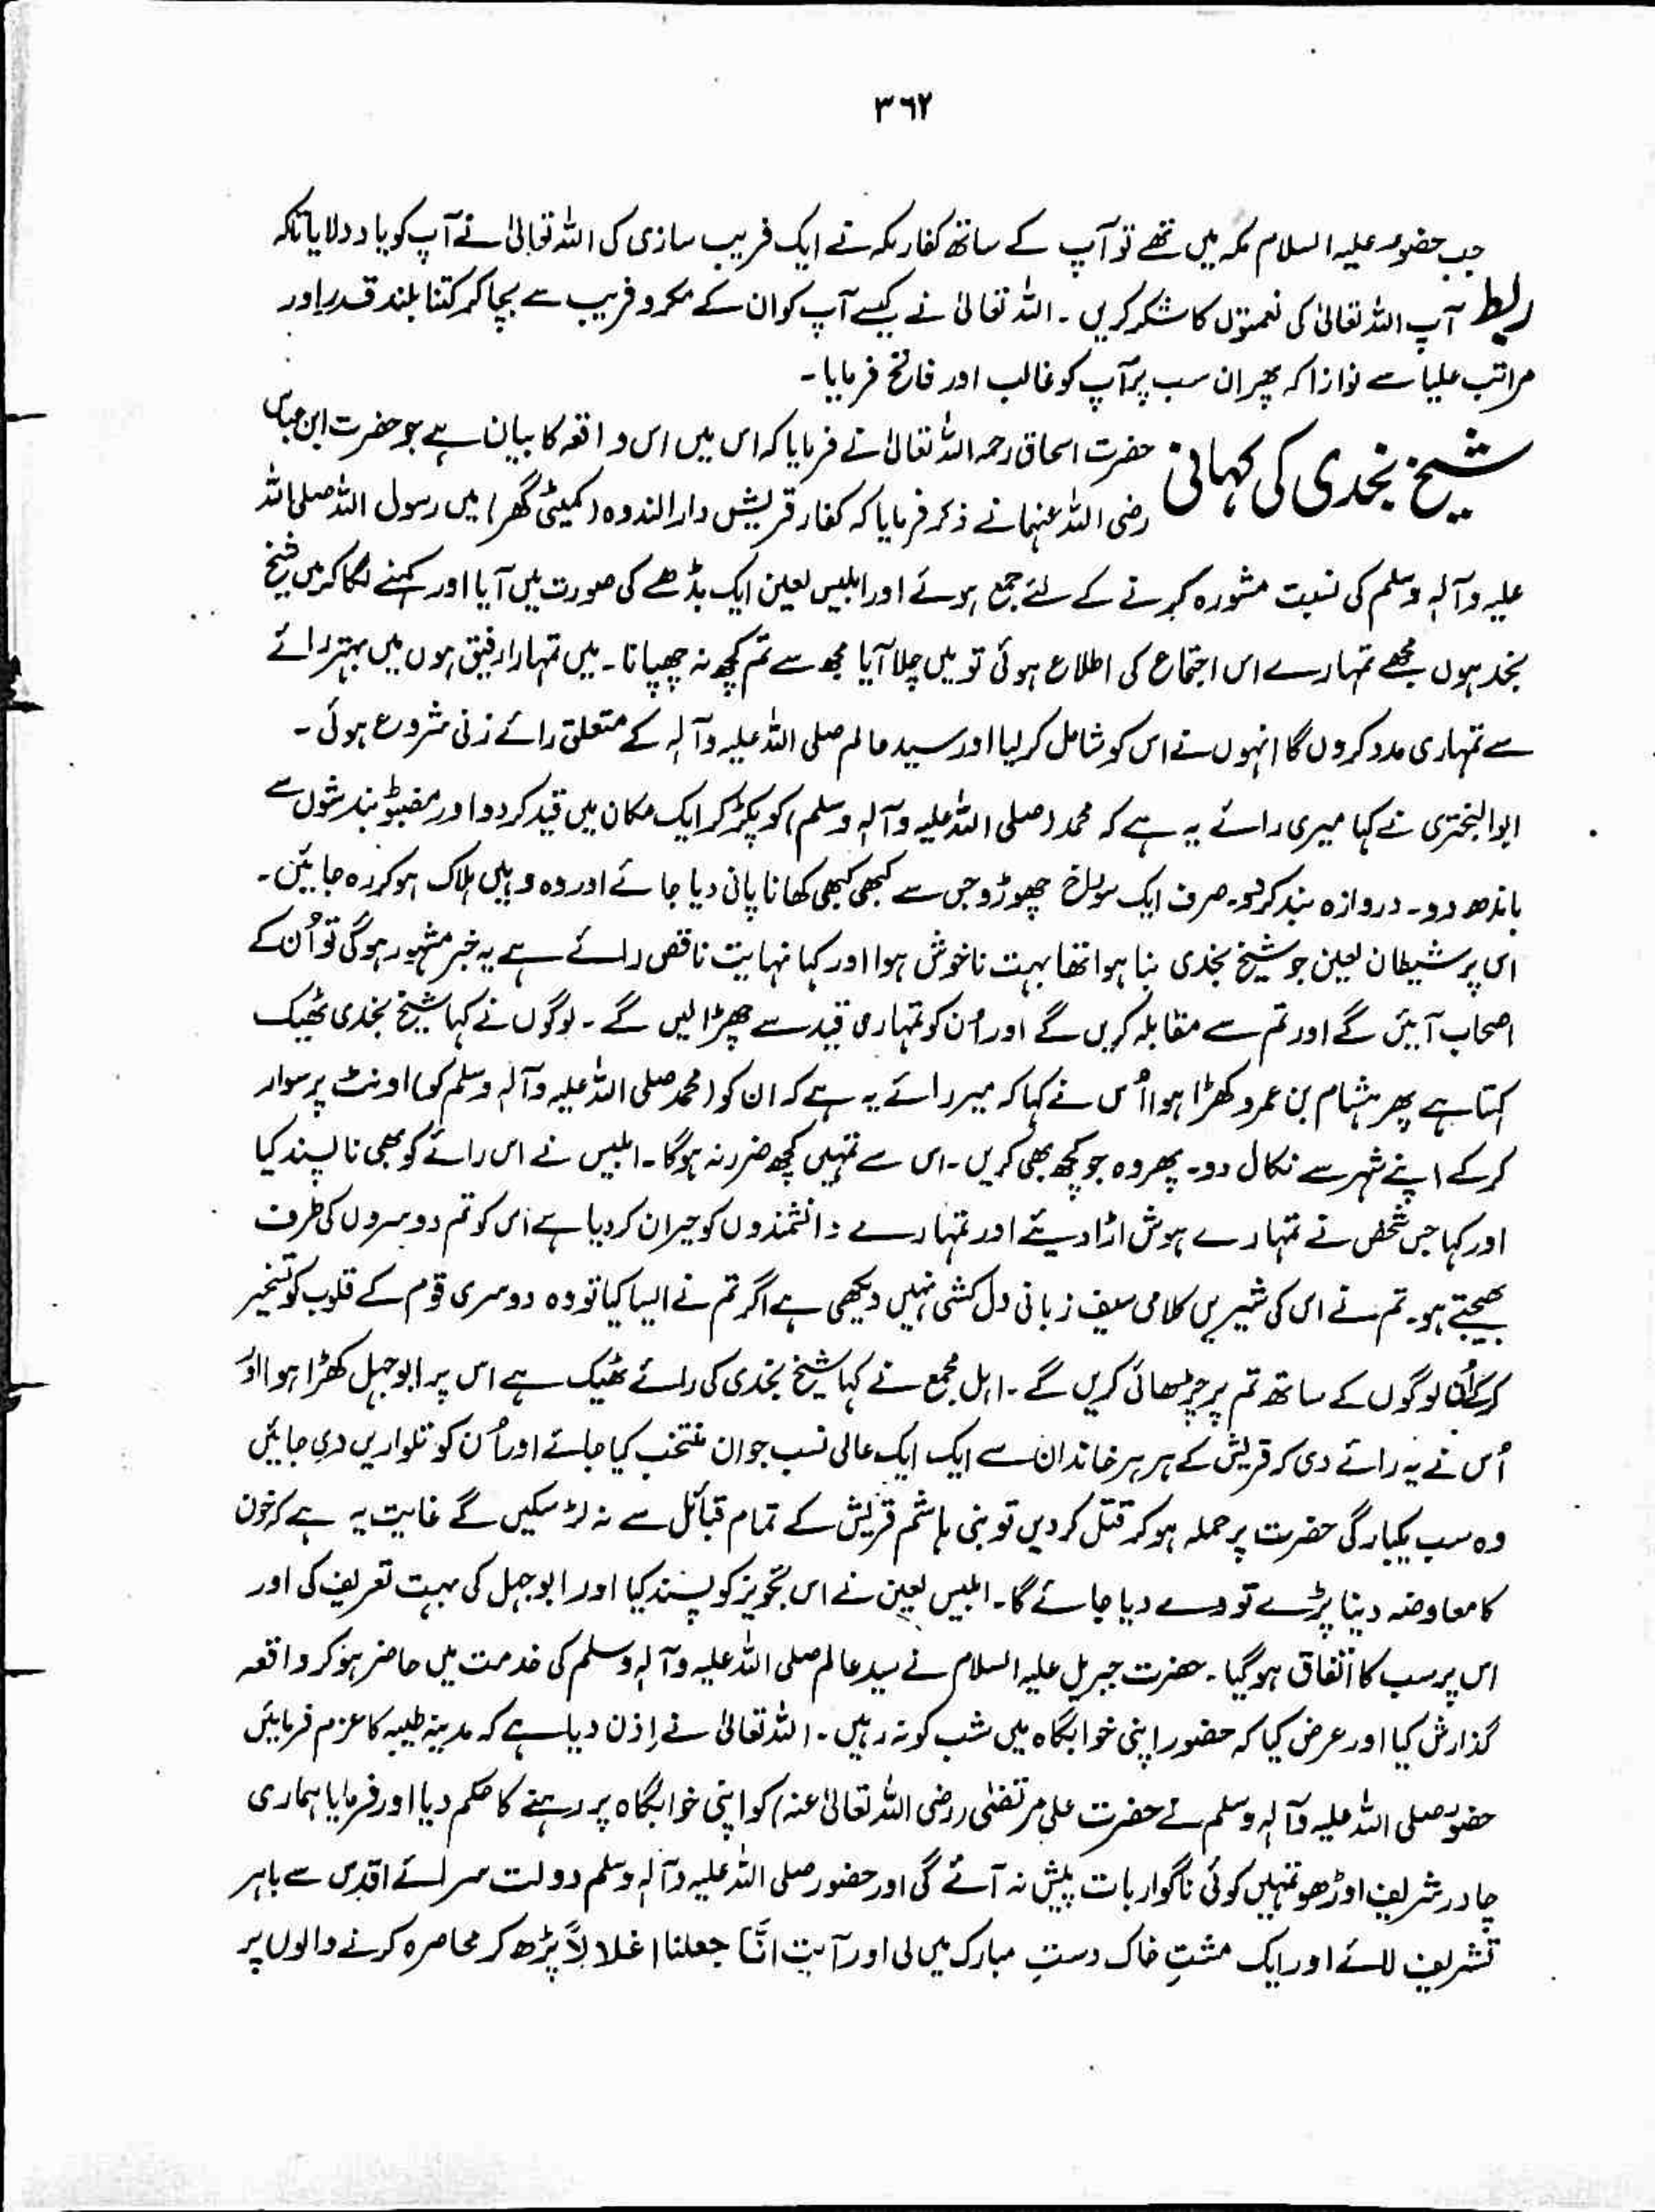 ٣٦٢
جب حضور علیہ السلام مکہ میں تھے تو آپ کے ساتھ کفار مکہ نے ایک فریب سازی کی اللہ تعالیٰ نے آپ کو یاد دلایا تاکہ
ربط آپ اللہ تعالیٰ کی نعمتوں کا شکر کریں ۔ اللہ تعالیٰ نے کیسے آپ کو ان کے مکر و فریب سے بچا کر کتنا بلند قدر اور
مراتب علیا سے نوازا کہ پھر ان سب پر آپ کو غالب اور فاتح فرمایا ۔
شیخ نجدی کی کہانی حضرت اسحاق رحمہ اللہ تعالیٰ نے فرمایا کہ اس میں اس واقعہ کا بیان ہے جو حضرت ابن عباس
رضی اللہ عنہما نے ذکر فرمایا کہ کفار قریش دار الندوہ (کمیٹی گھر) میں رسول اللہ صلی اللہ
علیہ وآلہٖ وسلم کی نسبت مشورہ کرنے کے لئے جمع ہوئے اور ابلیس لعین ایک بڈھے کی صورت میں آیا اور کہنے لگا کہ میں شیخ
نجد ہوں مجھے تمہارے اس اجتماع کی اطلاع ہوئی تو میں چلا آیا مجھ سے تم کچھ نہ چھپانا ۔ میں تمہارا رفیق ہوں میں بہتر رائے
سے تمہاری مدد کروں گا انہوں نے اس کو شامل کر لیا اور سید عالم صلی اللہ علیہ وآلہٖ کے متعلق رائے زنی شروع ہوئی ۔
ابوالبختری نے کہا میری رائے یہ ہے کہ محمد (صلی اللہ علیہ وآلہٖ وسلم) کو پکڑ کر ایک مکان میں قید کر دو اور مضبوط بندشوں سے
باندھ دو ۔ دروازہ بند کردو ۔ صرف ایک سوراخ چھوڑو جس سے کبھی کبھی کھانا پانی دیا جائے اور وہ وہیں ہلاک ہو کر رہ جائیں ۔
اس پر شیطان لعین جو شیخ نجدی بنا ہوا تھا بہت ناخوش ہوا اور کہا نہایت ناقص رائے ہے یہ خبر مشہور ہوگی تو اُن کے
اصحاب آئیں گے اور تم سے مقابلہ کریں گے اور اُن کو تمہاری قید سے چھڑا لیں گے ۔ لوگوں نے کہا شیخ نجدی ٹھیک
کہتا ہے پھر ہشام بن عمرو کھڑا ہوا اُس نے کہا کہ میر رائے یہ ہے کہ ان کو (محمد صلی اللہ علیہ وآلہٖ وسلم کو) اونٹ پر سوار
کر کے اپنے شہر سے نکال دو ۔ پھر وہ جو کچھ بھی کریں ۔ اس سے تمہیں کچھ ضرر نہ ہوگا ۔ ابلیس نے اس رائے کو بھی ناپسند کیا
اور کہا جس شخص نے تمہارے ہوش اڑا دیئے اور تمہارے دانشمندوں کو حیران کر دیا ہے اس کو تم دوسروں کی طرف
بھیجتے ہو ۔ تم نے اس کی شیریں کلامی سیف زبانی دل کشی نہیں دیکھی ہے اگر تم نے ایسا کیا تو وہ دوسری قوم کے قلوب کو تسخیر
کر کے اُن لوگوں کے ساتھ تم پر چڑھائی کریں گے ۔ اہل مجمع نے کہا شیخ نجدی کی رائے ٹھیک ہے اس پر ابو جہل کھڑا ہوا اور
اُس نے یہ رائے دی کہ قریش کے ہر ہر خاندان سے ایک ایک عالی نسب جوان منتخب کیا جائے اور اُن کو تلواریں دی جائیں
وہ سب یکبارگی حضرت پر حملہ ہو کر قتل کر دیں تو بنی ہاشم قریش کے تمام قبائل سے نہ لڑ سکیں گے غایت یہ ہے کہ خون
کا معاوضہ دینا پڑے تو دے دیا جائے گا ۔ ابلیس لعین نے اس تجویز کو پسند کیا اور ابو جہل کی بہت تعریف کی اور
اس پر سب کا اتفاق ہو گیا ۔ حضرت جبریل علیہ السلام نے سید عالم صلی اللہ علیہ وآلہٖ وسلم کی خدمت میں حاضر ہو کر واقعہ
گذارش کیا اور عرض کیا کہ حضور اپنی خوابگاہ میں شب کو نہ رہیں ۔ اللہ تعالیٰ نے اِذن دیا ہے کہ مدینہ طیبہ کا عزم فرمائیں
حضور صلی اللہ علیہ وآلہٖ وسلم نے حضرت علی مرتضیٰ (رضی اللہ تعالیٰ عنہ) کو اپنی خوابگاہ پر رہنے کا حکم دیا اور فرمایا ہماری
چادر شریف اوڑھو تمہیں کوئی ناگوار بات پیش نہ آئے گی اور حضور صلی اللہ علیہ وآلہٖ وسلم دولت سرائے اقدس سے باہر
تشریف لائے اور ایک مشتِ خاک دستِ مبارک میں لی اور آیت انَّا جعلنا اغلالاً پڑھ کر محاصرہ کرنے والوں پر